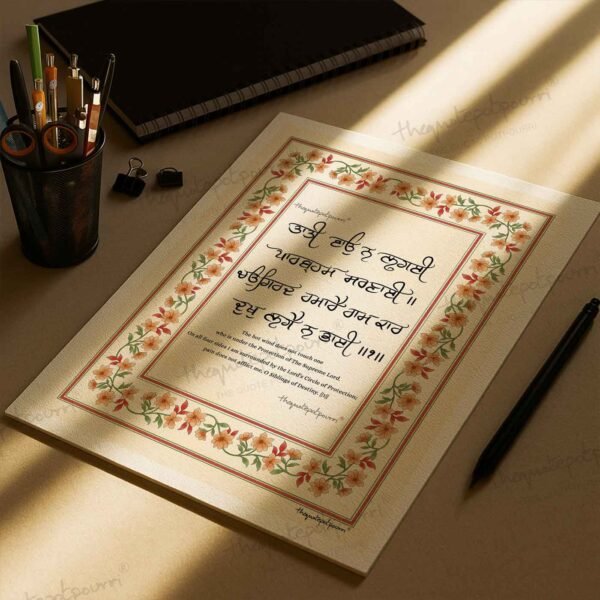 thequotepotpourri®
THE QUOTE POTPOURRI
thequotepotpourri®
ਤਾਤੀ ਵਾਉ ਨ ਲਗਈ
ਪਾਰਬ੍ਰਹਮ ਸਰਣਾਈ ॥
ਚਉਗਿਰਦ ਹਮਾਰੈ ਰਾਮ ਕਾਰ
ਦੁਖ ਲਗੈ ਨ ਭਾਈ ॥੧॥
The hot wind does not touch one
who is under the Protection of The Supreme Lord.
On all four sides I am surrounded by the Lord's Circle of Protection;
pain does not afflict me, O Siblings of Destiny. ||1||
thequotepotpourri®
thequotepotpourri®
thequotepotpourri®